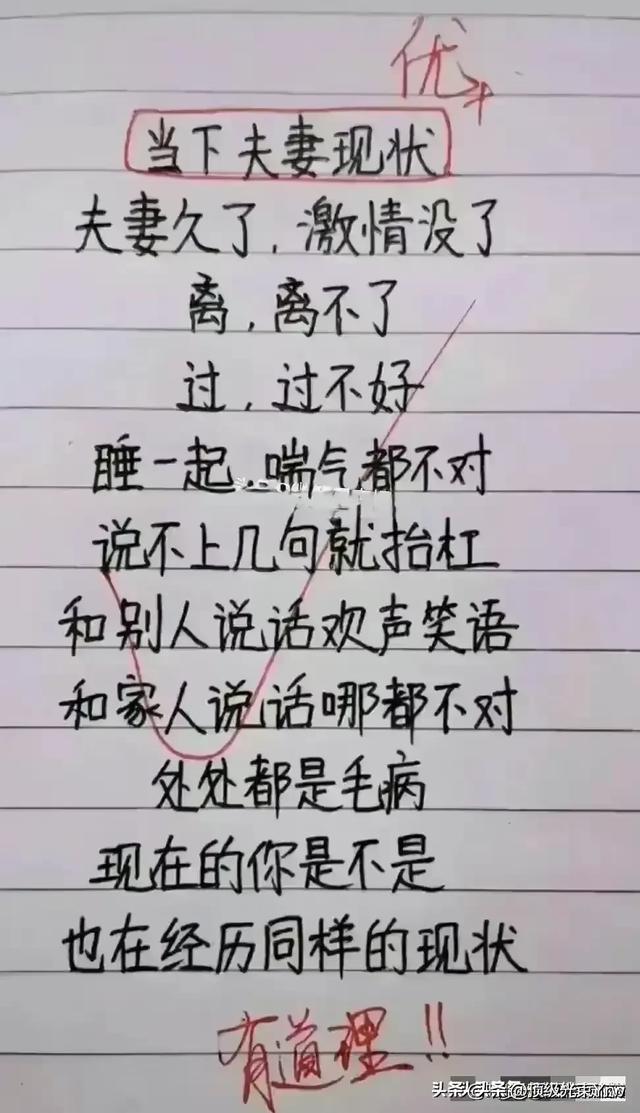 优+
当下夫妻现状
夫妻久了,激情没了
离,离不了
过,过不好
睡一起 喘气都不对
说不上几句就抬杠
和别人说话欢声笑语
和家人说话哪都不对
处处都是毛病
现在的你是不是
也在经历同样的现状
有道理!!